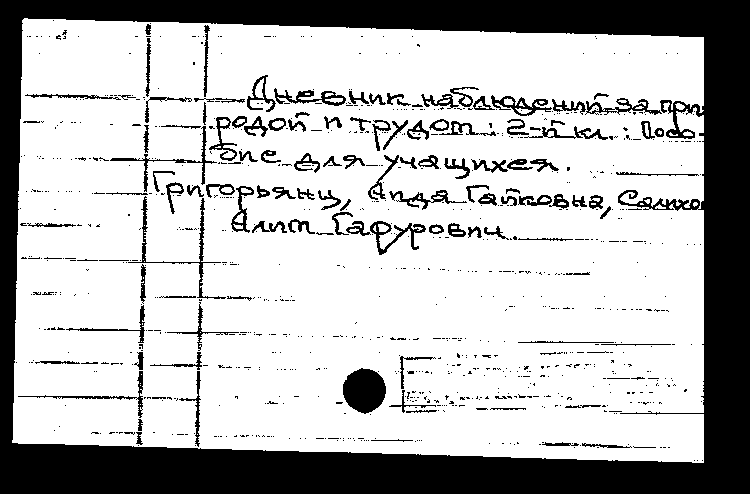 Дневник наблюдений за при-
родой и трудом : 2-й кл. : Посо-
бие для учащихся.
Григорьянц, Аида Гайковна, Салихо
Алим Гафурович.